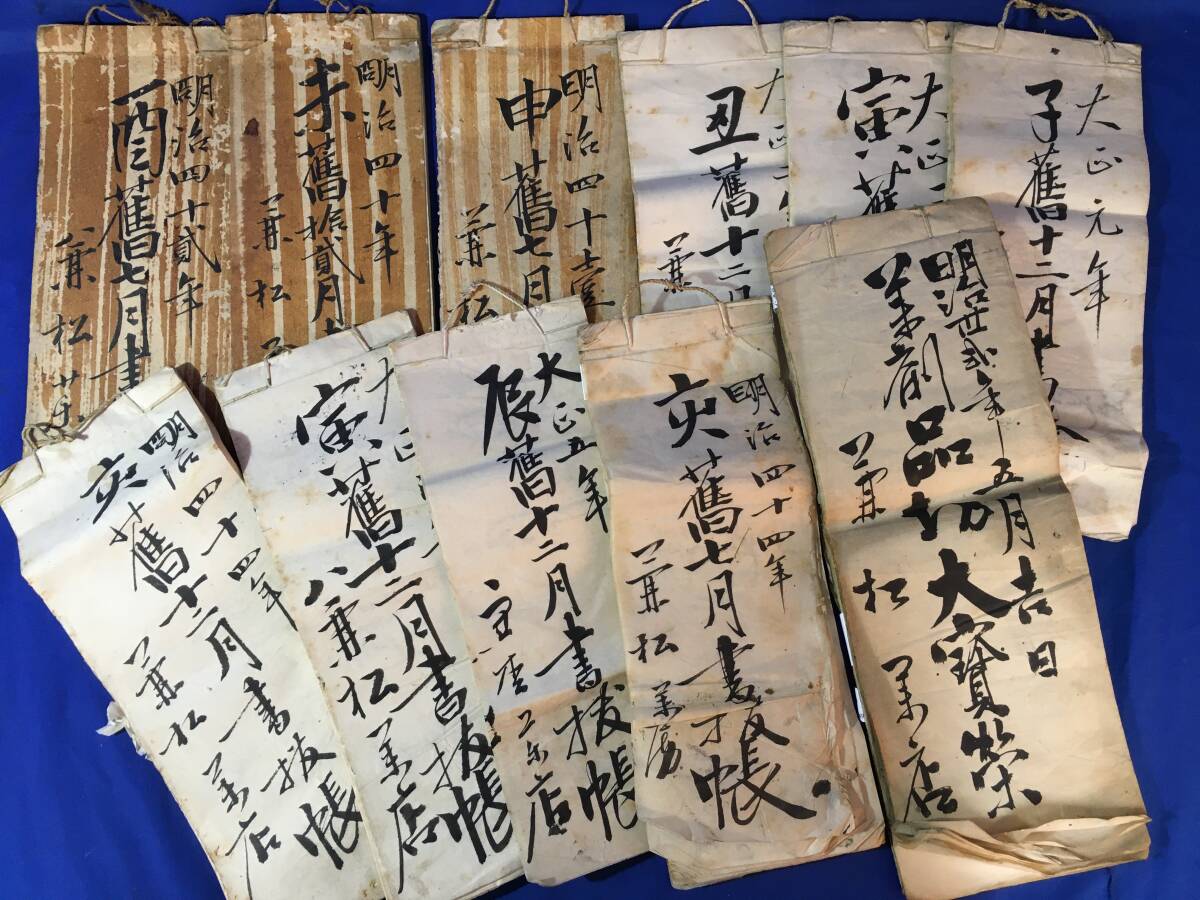 明治四十貳年
酉舊七月書
兼松
明治四十年
未舊拾貳月
兼松
明治四十壹
申舊七月
兼松
大正
丑舊十二月
兼
大正
寅舊
大正元年
子舊十二月
明治四十四年
亥舊十二月書抜帳
兼松薬店
大正
寅舊十二月書抜帳
兼松薬店
大正五年
辰舊十二月書抜帳
店
明治四十四年
亥舊七月書抜帳
兼松薬房
明治廿貳年五月吉日
薬劑品切大寶榮
兼松薬店